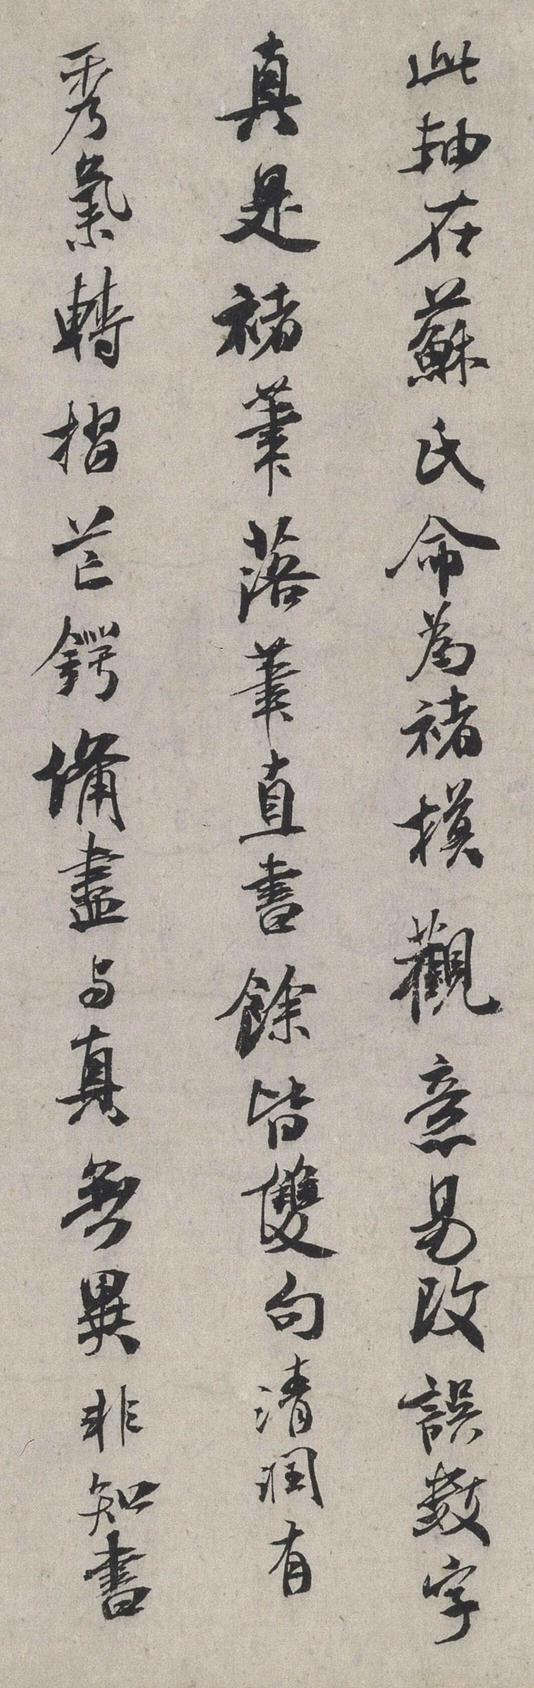 此軸在蘇氏命為褚模觀意易改誤數字
真是褚筆落筆直書餘皆雙勾清潤有
秀氣轉摺芒鍔備盡与真無異非知書